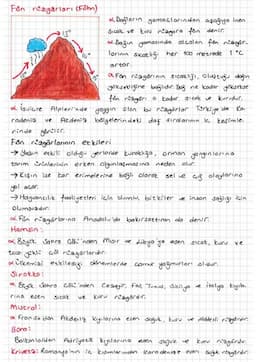 Fön rüzgarları (Föhn)
α Dağların yamaçlarından aşağıya inen
sıcak ve kuru rüzgara fön denir.
α Dağın yamacında alçalan fön rüzgâr-
larının sıcaklığı her 100 metrede 1°C
artar.
α Fön rüzgârının sıcaklığı, oluştuğu dağın
yükseltisine bağlıdır. Dağ ne kadar yüksekse
fön rüzgârı o kadar sıcak ve kurudur.
α İsviçre Alplerinde yaygın olan bu rüzgârlar Türkiye'de Ka-
radeniz ve Akdeniz bölgelerindeki dağ sıralarının iç kesimle-
rinde görülür.
Fön rüzgarlarının etkileri
→ Yoğun etkili olduğu yerlerde kuraklığa, orman yangınlarına
tarım ürünlerinin erken olgunlaşmasına neden olur.
→ Kışın ise kar erimelerine bağlı olarak sel ve çığ olaylarına
yol açar.
→ Hayvancılık faaliyetleri için olumlu, bitkiler ve insan sağlığı için
olumsuzdur.
α Fön rüzgârlarına Anadolu'da denir.
Hamsin:
α Büyük Sahra Çölü'nden Mısır ve Libya'ya esen sıcak, kuru ve
toz yüklü çöl rüzgârlarıdır.
α Ülkemizi etkilediği dönemlerde çamur yağmurları olur.
Sirokko:
α Büyük Sahra Çölü'nden Cezayir, Fas, Tunus, Sicilya ve İtalya kıyıla-
rına esen sıcak ve kuru rüzgârdır.
Mistral:
α Fransa'dan Akdeniz kıyılarına esen soğuk, kuru ve şiddetli rüzgârdır.
Bora:
Balkanlardan Adriyatik kıyılarına esen soğuk ve kuru rüzgârdır.
Krivetz: Romanya'nın iç kısımlarından Karadenize esen soğuk rüzgardır.